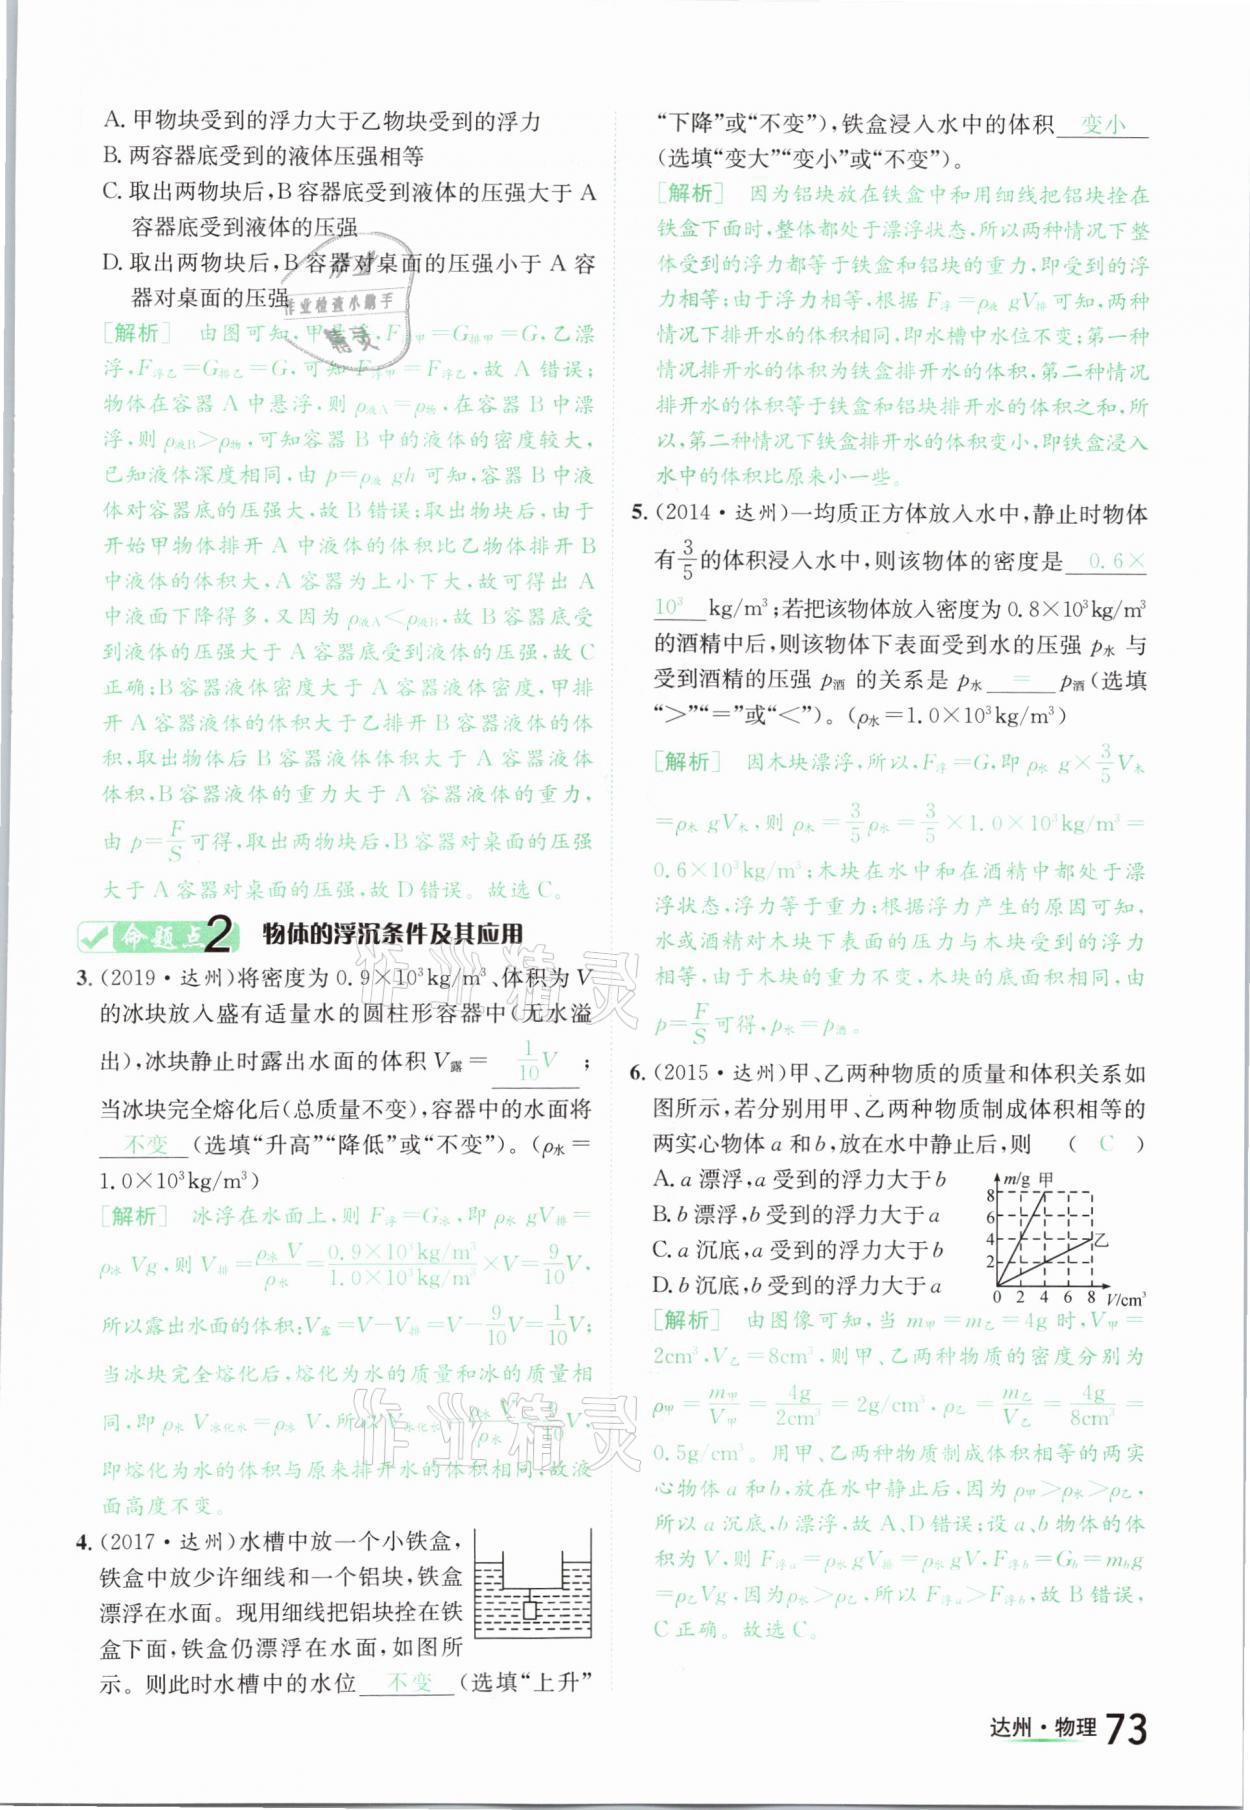 A. 甲物块受到的浮力大于乙物块受到的浮力
B. 两容器底受到的液体压强相等
C. 取出两物块后,B容器底受到液体的压强大于A
容器底受到液体的压强
D. 取出两物块后,B容器对桌面的压强小于A容
器对桌面的压强
[解析] 由图可知,甲悬浮,F浮甲=G排甲=G,乙漂
浮,F浮乙=G排乙=G,可知F浮甲=F浮乙,故A错误;
物体在容器A中悬浮,则ρ液A=ρ物,在容器B中漂
浮,则ρ液B>ρ物,可知容器B中的液体的密度较大,
已知液体深度相同,由p=ρ液gh可知,容器B中液
体对容器底的压强大,故B错误;取出物块后,由于
开始甲物体排开A中液体的体积比乙物体排开B
中液体的体积大,A容器为上小下大,故可得出A
中液面下降得多,又因为ρ液A<ρ液B,故B容器底受
到液体的压强大于A容器底受到液体的压强,故C
正确;B容器液体密度大于A容器液体密度,甲排
开A容器液体的体积大于乙排开B容器液体的体
积,取出物体后B容器液体体积大于A容器液体
体积,B容器液体的重力大于A容器液体的重力,
由p=F/S可得,取出两物块后,B容器对桌面的压强
大于A容器对桌面的压强,故D错误。故选C。
命题点2 物体的浮沉条件及其应用
3. (2019·达州)将密度为0.9×10³kg/m³、体积为V
的冰块放入盛有适量水的圆柱形容器中(无水溢
出),冰块静止时露出水面的体积V露= 1/10 V ;
当冰块完全熔化后(总质量不变),容器中的水面将
不变 (选填“升高”“降低”或“不变”)。(ρ水=
1.0×10³kg/m³)
[解析] 冰浮在水面上,则F浮=G冰,即ρ水gV排=
ρ冰Vg,则V排=ρ冰V/ρ水=0.9×10³kg/m³/1.0×10³kg/m³×V=9/10V,
所以露出水面的体积:V露=V-V排=V-9/10V=1/10V;
当冰块完全熔化后,熔化为水的质量和冰的质量相
同,即ρ水V冰化水=ρ冰V,所以V冰化水=ρ冰V/ρ水=9/10V,
即熔化为水的体积与原来排开水的体积相同,故液
面高度不变。
4. (2017·达州)水槽中放一个小铁盒,
铁盒中放少许细线和一个铝块,铁盒
漂浮在水面。现用细线把铝块拴在铁
盒下面,铁盒仍漂浮在水面,如图所
示。则此时水槽中的水位 不变 (选填“上升”
“下降”或“不变”),铁盒浸入水中的体积 变小
(选填“变大”“变小”或“不变”)。
[解析] 因为铝块放在铁盒中和用细线把铝块拴在
铁盒下面时,整体都处于漂浮状态,所以两种情况下整
体受到的浮力都等于铁盒和铝块的重力,即受到的浮
力相等;由于浮力相等,根据F浮=ρ液gV排可知,两种
情况下排开水的体积相同,即水槽中水位不变;第一种
情况排开水的体积为铁盒排开水的体积,第二种情况
排开水的体积等于铁盒和铝块排开水的体积之和,所
以,第二种情况下铁盒排开水的体积变小,即铁盒浸入
水中的体积比原来小一些。
5. (2014·达州)一均质正方体放入水中,静止时物体
有3/5的体积浸入水中,则该物体的密度是 0.6×
10³ kg/m³;若把该物体放入密度为0.8×10³kg/m³
的酒精中后,则该物体下表面受到水的压强p水与
受到酒精的压强p酒的关系是p水 = p酒(选填
“>”“=”或“<”)。(ρ水=1.0×10³kg/m³)
[解析] 因木块漂浮,所以,F浮=G,即ρ水g×3/5V木
=ρ木gV木,则ρ木=3/5ρ水=3/5×1.0×10³kg/m³=
0.6×10³kg/m³;木块在水中和在酒精中都处于漂
浮状态,浮力等于重力;根据浮力产生的原因可知,
水或酒精对木块下表面的压力与木块受到的浮力
相等,由于木块的重力不变,木块的底面积相同,由
p=F/S可得,p水=p酒。
6. (2015·达州)甲、乙两种物质的质量和体积关系如
图所示,若分别用甲、乙两种物质制成体积相等的
两实心物体a和b,放在水中静止后,则 ( C )
A. a漂浮,a受到的浮力大于b
B. b漂浮,b受到的浮力大于a
C. a沉底,a受到的浮力大于b
D. b沉底,b受到的浮力大于a
m/g 甲
8
6
4 乙
2
0 2 4 6 8 V/cm³
[解析] 由图像可知,当m甲=m乙=4g时,V甲=
2cm³,V乙=8cm³,则甲、乙两种物质的密度分别为
ρ甲=m甲/V甲=4g/2cm³=2g/cm³,ρ乙=m乙/V乙=4g/8cm³=
0.5g/cm³。用甲、乙两种物质制成体积相等的两实
心物体a和b,放在水中静止后,因为ρ甲>ρ水>ρ乙,
所以a沉底,b漂浮,故A、D错误;设a、b物体的体
积为V,则F浮a=ρ水gV排=ρ水gV,F浮b=Gb=mbg
=ρ乙Vg,因为ρ水>ρ乙,所以F浮a>F浮b,故B错误,
C正确。故选C。
作业
作业检查小助手
精灵
作业精灵
作业精灵
达州·物理 73